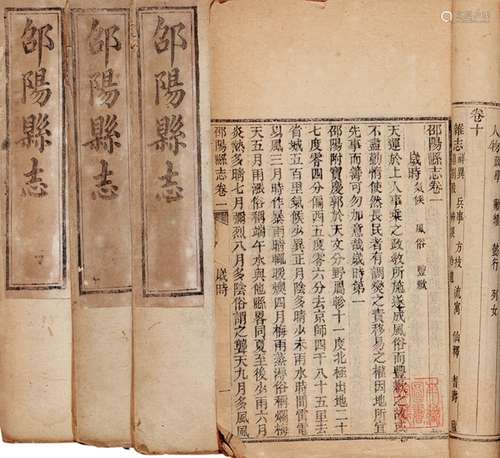 卷十
雜志 祥異 兵事 方技 流寓 仙釋
邵陽縣志卷一
歲時 氣候 風俗 豐歉
天運於上人事乘之政教所施遂成風俗而豐歉之故
不盡勤惰使然長民者有調燮之責移易之權因地所宜
先事而籌可勿加意哉歲時第一
邵陽附寶慶郭於天文分野屬軫十一度北極出地二十
七度零四分偏西五度零六分去京師四千八十五里去
省城五百里氣候少異正月陰多晴少未雨水時間震電
易風三月時作暴雨晴輒暖燠四月梅雨蒸溽俗稱爛梅
天五月雨漲俗稱端午水與他縣畧同夏至後少雨六月
炎熱多晴七月彌烈八月多陰俗謂之聾天九月多風
邵陽縣志 卷一 歲時 一
邵陽縣志
邵陽縣志
邵陽縣志